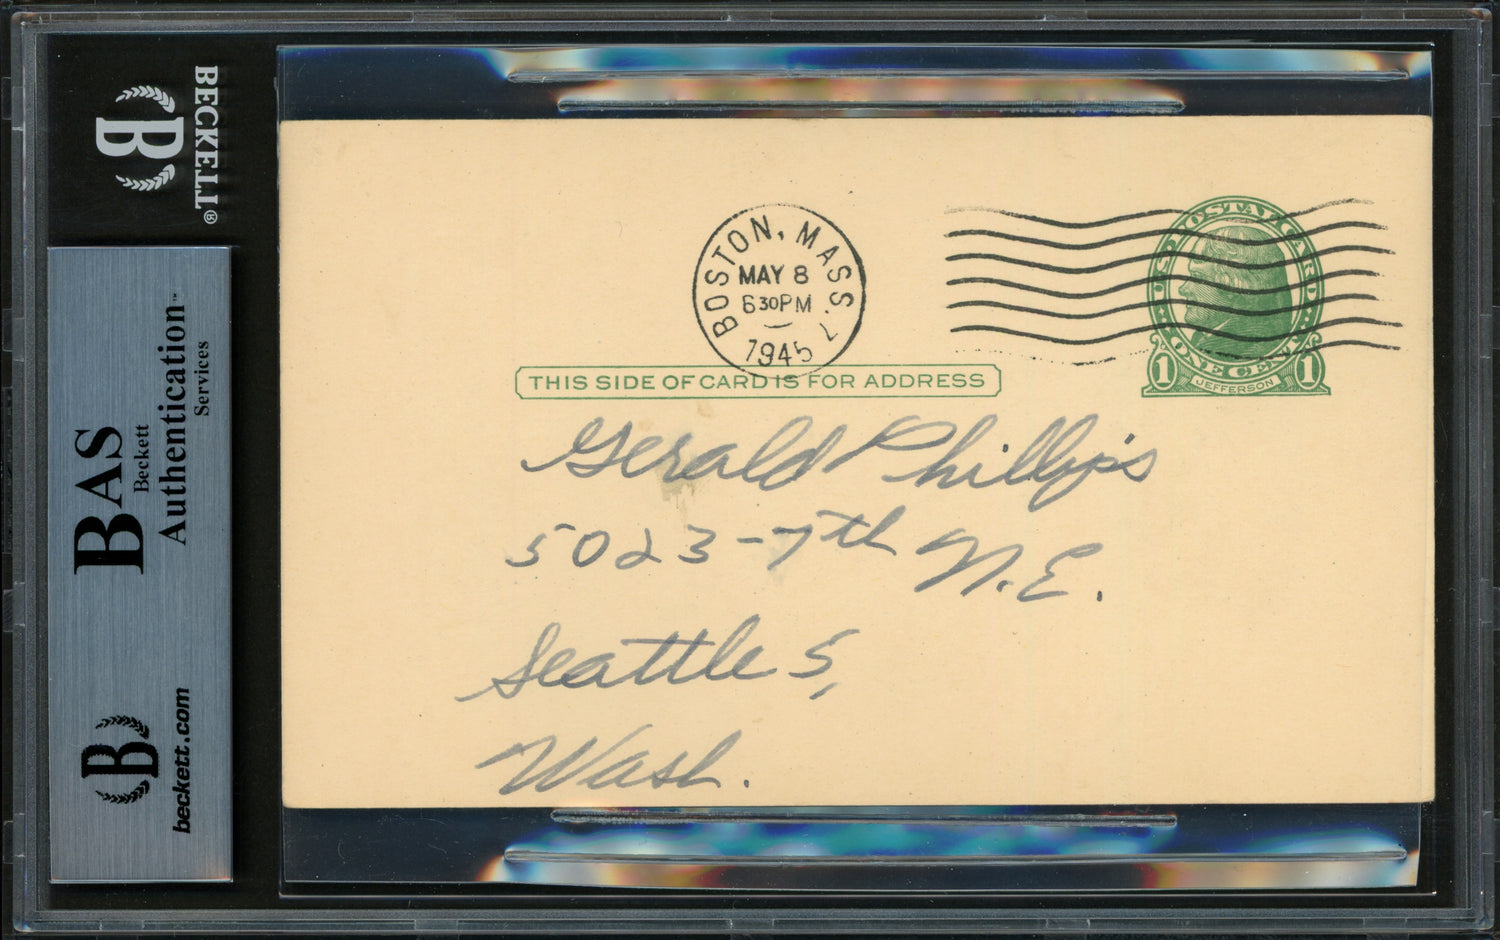 BECKETT®
BAS
Beckett
Authentication™
Services
beckett.com
B
B
BOSTON, MASS. 7
MAY 8
6 30 PM
1945
U.S. POSTAL CARD
ONE CENT
1 JEFFERSON 1
THIS SIDE OF CARD IS FOR ADDRESS
Gerald Phillips
5023-7th N.E.
Seattle 5,
Wash.